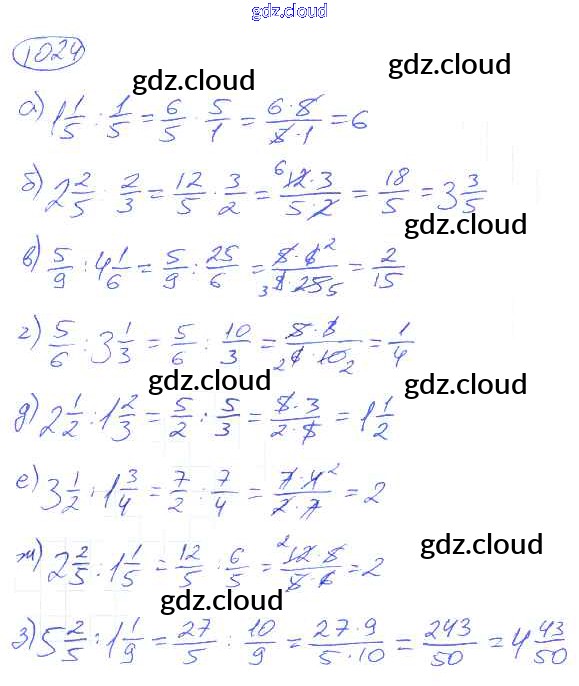 gdz.cloud
1024
gdz.cloud
gdz.cloud
а) 1 1/5 : 1/5 = 6/5 · 5/1 = 6·5/5·1 = 6
б) 2 2/5 : 2/3 = 12/5 · 3/2 = 6 12·3/5·2 = 18/5 = 3 3/5
gdz.cloud
gdz.cloud
в) 5/9 : 4 1/6 = 5/9 : 25/6 = 5·6 2/3 9·25 5 = 2/15
г) 5/6 : 3 1/3 = 5/6 : 10/3 = 5·3/2 6·10 2 = 1/4
gdz.cloud
gdz.cloud
д) 2 1/2 : 1 2/3 = 5/2 : 5/3 = 5·3/2·5 = 1 1/2
е) 3 1/2 : 1 3/4 = 7/2 : 7/4 = 7·4 2/2·7 = 2
gdz.cloud
ж) 2 2/5 : 1 1/5 = 12/5 : 6/5 = 2 12·5/5·6 = 2
gdz.cloud
з) 5 2/5 : 1 1/9 = 27/5 : 10/9 = 27·9/5·10 = 243/50 = 4 43/50